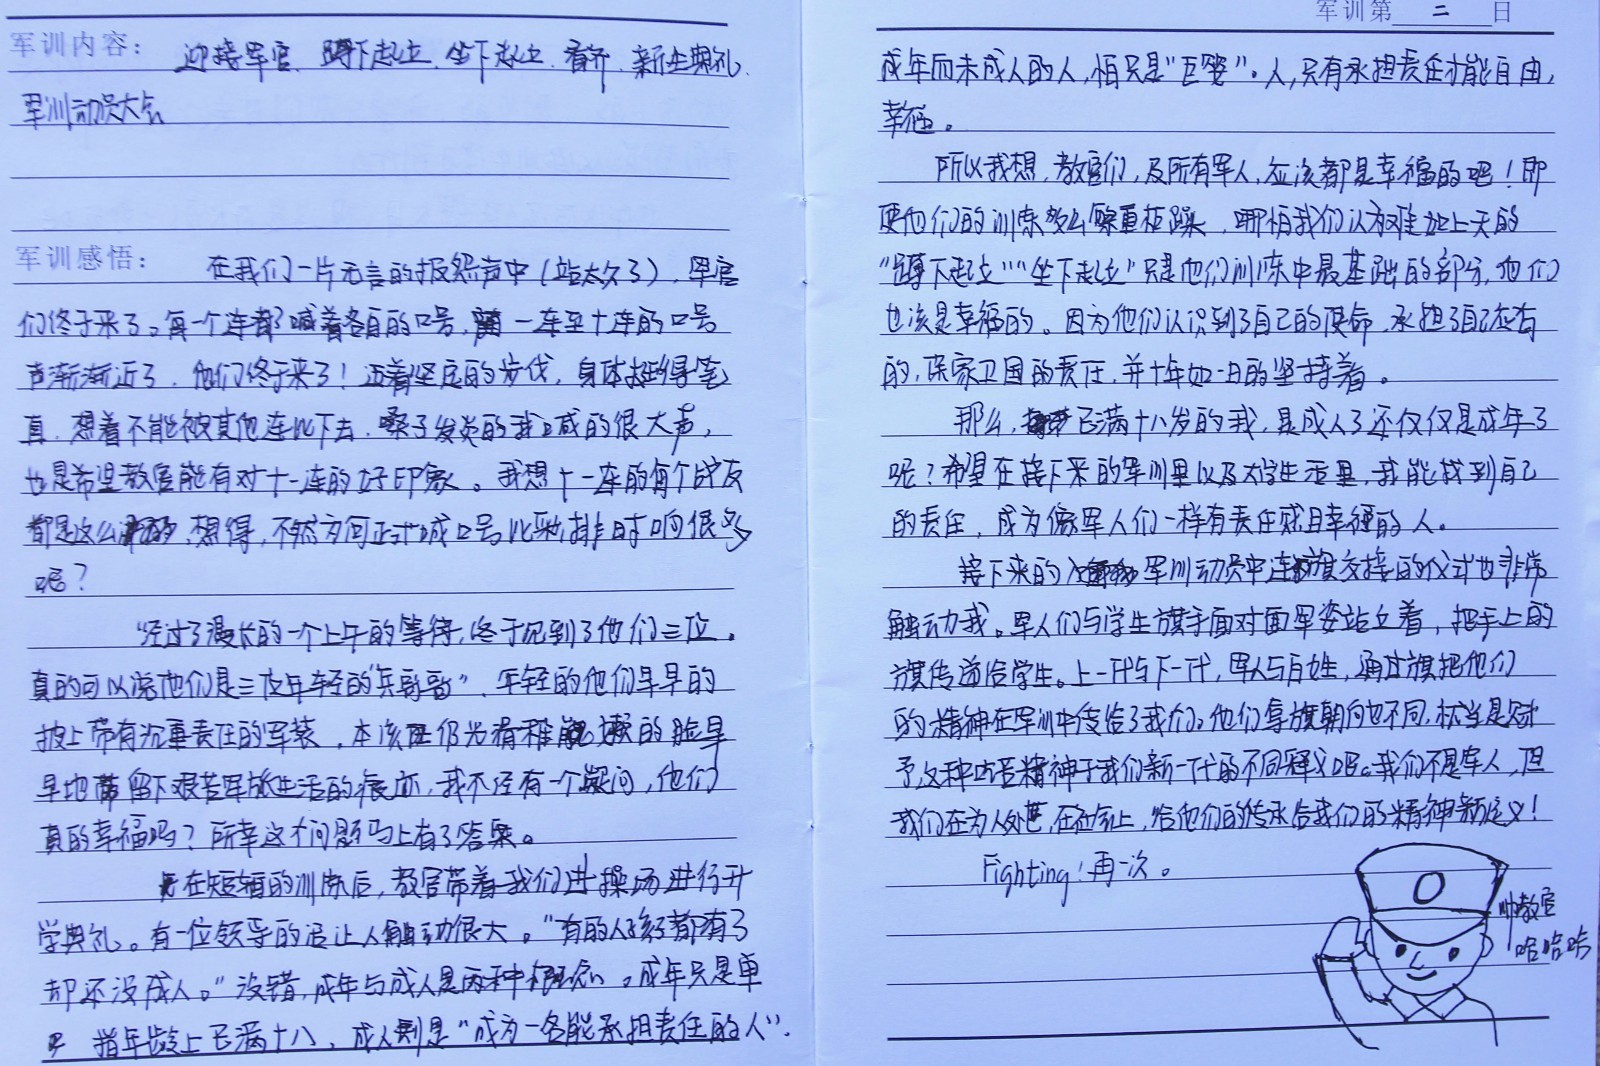 军训内容： 迎接军官、蹲下起立、坐下起立、看齐、新生典礼、
军训动员大会
军训感悟： 在我们一片无言的报怨声中（站太久了），军官
们终于来了。每一个连都喊着各自的口号，一连至十连的口号
声渐渐近了，他们终于来了！迈着坚定的步伐，身体挺得笔
直，想着不能被其他连比下去，嗓子发炎的我喊的很大声，
也是希望教官能有对十一连的好印象。我想十一连的每个战友
都是这么想得，不然为何正式喊口号比彩排时响很多
呢？
经过了漫长的一个上午的等待，终于见到了他们三位。
真的可以说他们是三位年轻的“兵哥哥”，年轻的他们早早的
披上带有沉重责任的军装，本该仍光滑稚嫩的脸早
早地留下艰苦军旅生活的痕迹，我不经有一个疑问，他们
真的幸福吗？所幸这个问题马上有了答案。
在短暂的训练后，教官带着我们进操场进行开
学典礼。有一位领导的话让人触动很大。“有的人孩子都有了
却还没成人。”没错，成年与成人是两种概念。成年只是单
指年龄上已满十八，成人则是“成为一名能承担责任的人”.
军训第 二 日
成年而未成人的人，怕只是“巨婴”。人，只有承担责任才能自由，
幸福。
所以我想，教官们，及所有军人，应该都是幸福的吧！即
使他们的训练多么繁重枯躁，哪怕我们认为难如上天的
“蹲下起立”“坐下起立”只是他们训练中最基础的部分，他们
也该是幸福的。因为他们认识到了自己的使命，承担了自己应有
的，保家卫国的责任，并十年如一日的坚持着。
那么，已满十八岁的我，是成人了还仅仅是成年了
呢？希望在接下来的军训里以及大学生活里，我能找到自己
的责任，成为像军人们一样有责任感且幸福的人。
接下来的军训动员中连旗交接的仪式也非常
触动我。军人们与学生旗手面对面军姿站立着，把手上的
旗传递给学生。上一代与下一代，军人与百姓，通过旗把他们
的精神在军训中传给了我们。他们拿旗朝向也不同，应当是赋
予这种吃苦精神于我们新一代的不同释义吧。我们不是军人，但
我们在为人处世，在社会上，给他们的传承给我们的精神新定义！
Fighting！再一次。
帅教官
哈哈哈